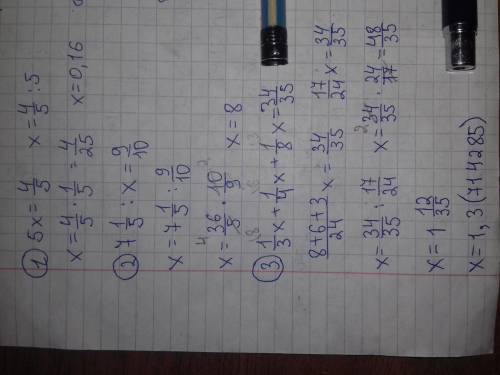 ① 5x = 4/5   x = 4/5 : 5
x = 4/5 · 1/5 = 4/25   x = 0,16
② 7 1/5 : x = 9/10
x = 7 1/5 : 9/10
x = 36/5 · 10/9   x = 8
③ 1/3 x + 1/4 x + 1/8 x = 34/35
(8+6+3)/24 x = 34/35   17/24 x = 34/35
x = 34/35 : 17/24   x = 34/35 · 24/17 = 48/35
x = 1 13/35
x = 1,3(714285)